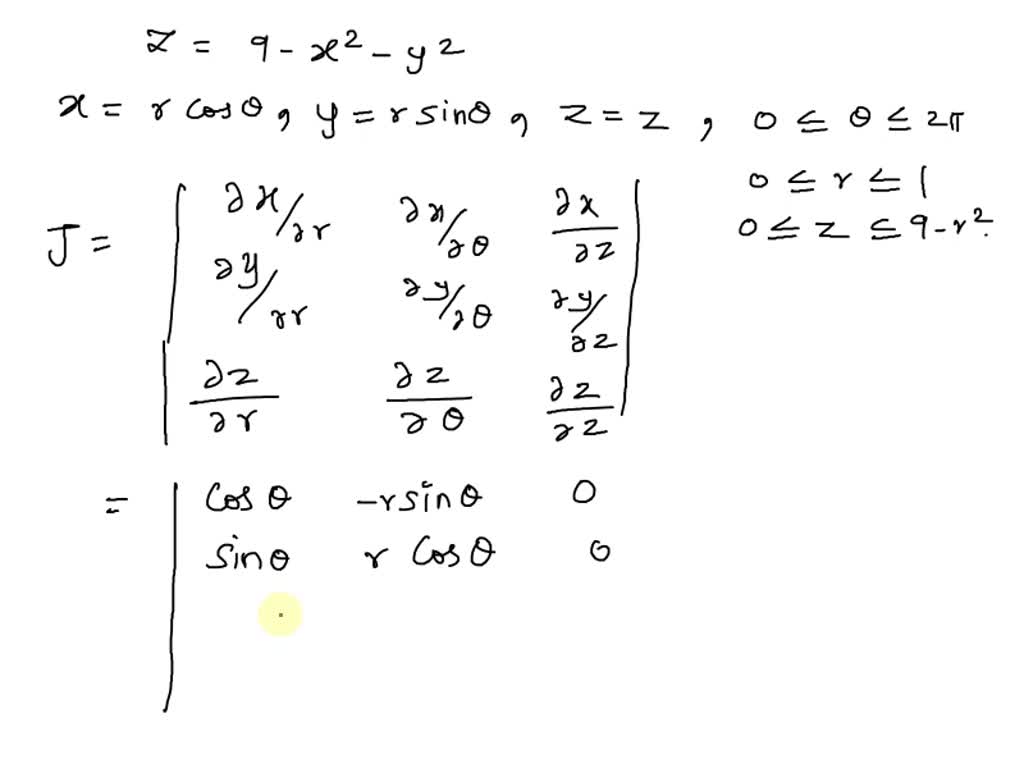 z = 9 - x² - y²
x = r cosθ, y = r sinθ, z = z, 0 ≤ θ ≤ 2π
0 ≤ r ≤ 1
0 ≤ z ≤ 9 - r².
J = | ∂x/∂r ∂x/∂θ ∂x/∂z |
| ∂y/∂r ∂y/∂θ ∂y/∂z |
| ∂z/∂r ∂z/∂θ ∂z/∂z |
= | cosθ -r sinθ 0
| sinθ r cosθ 0